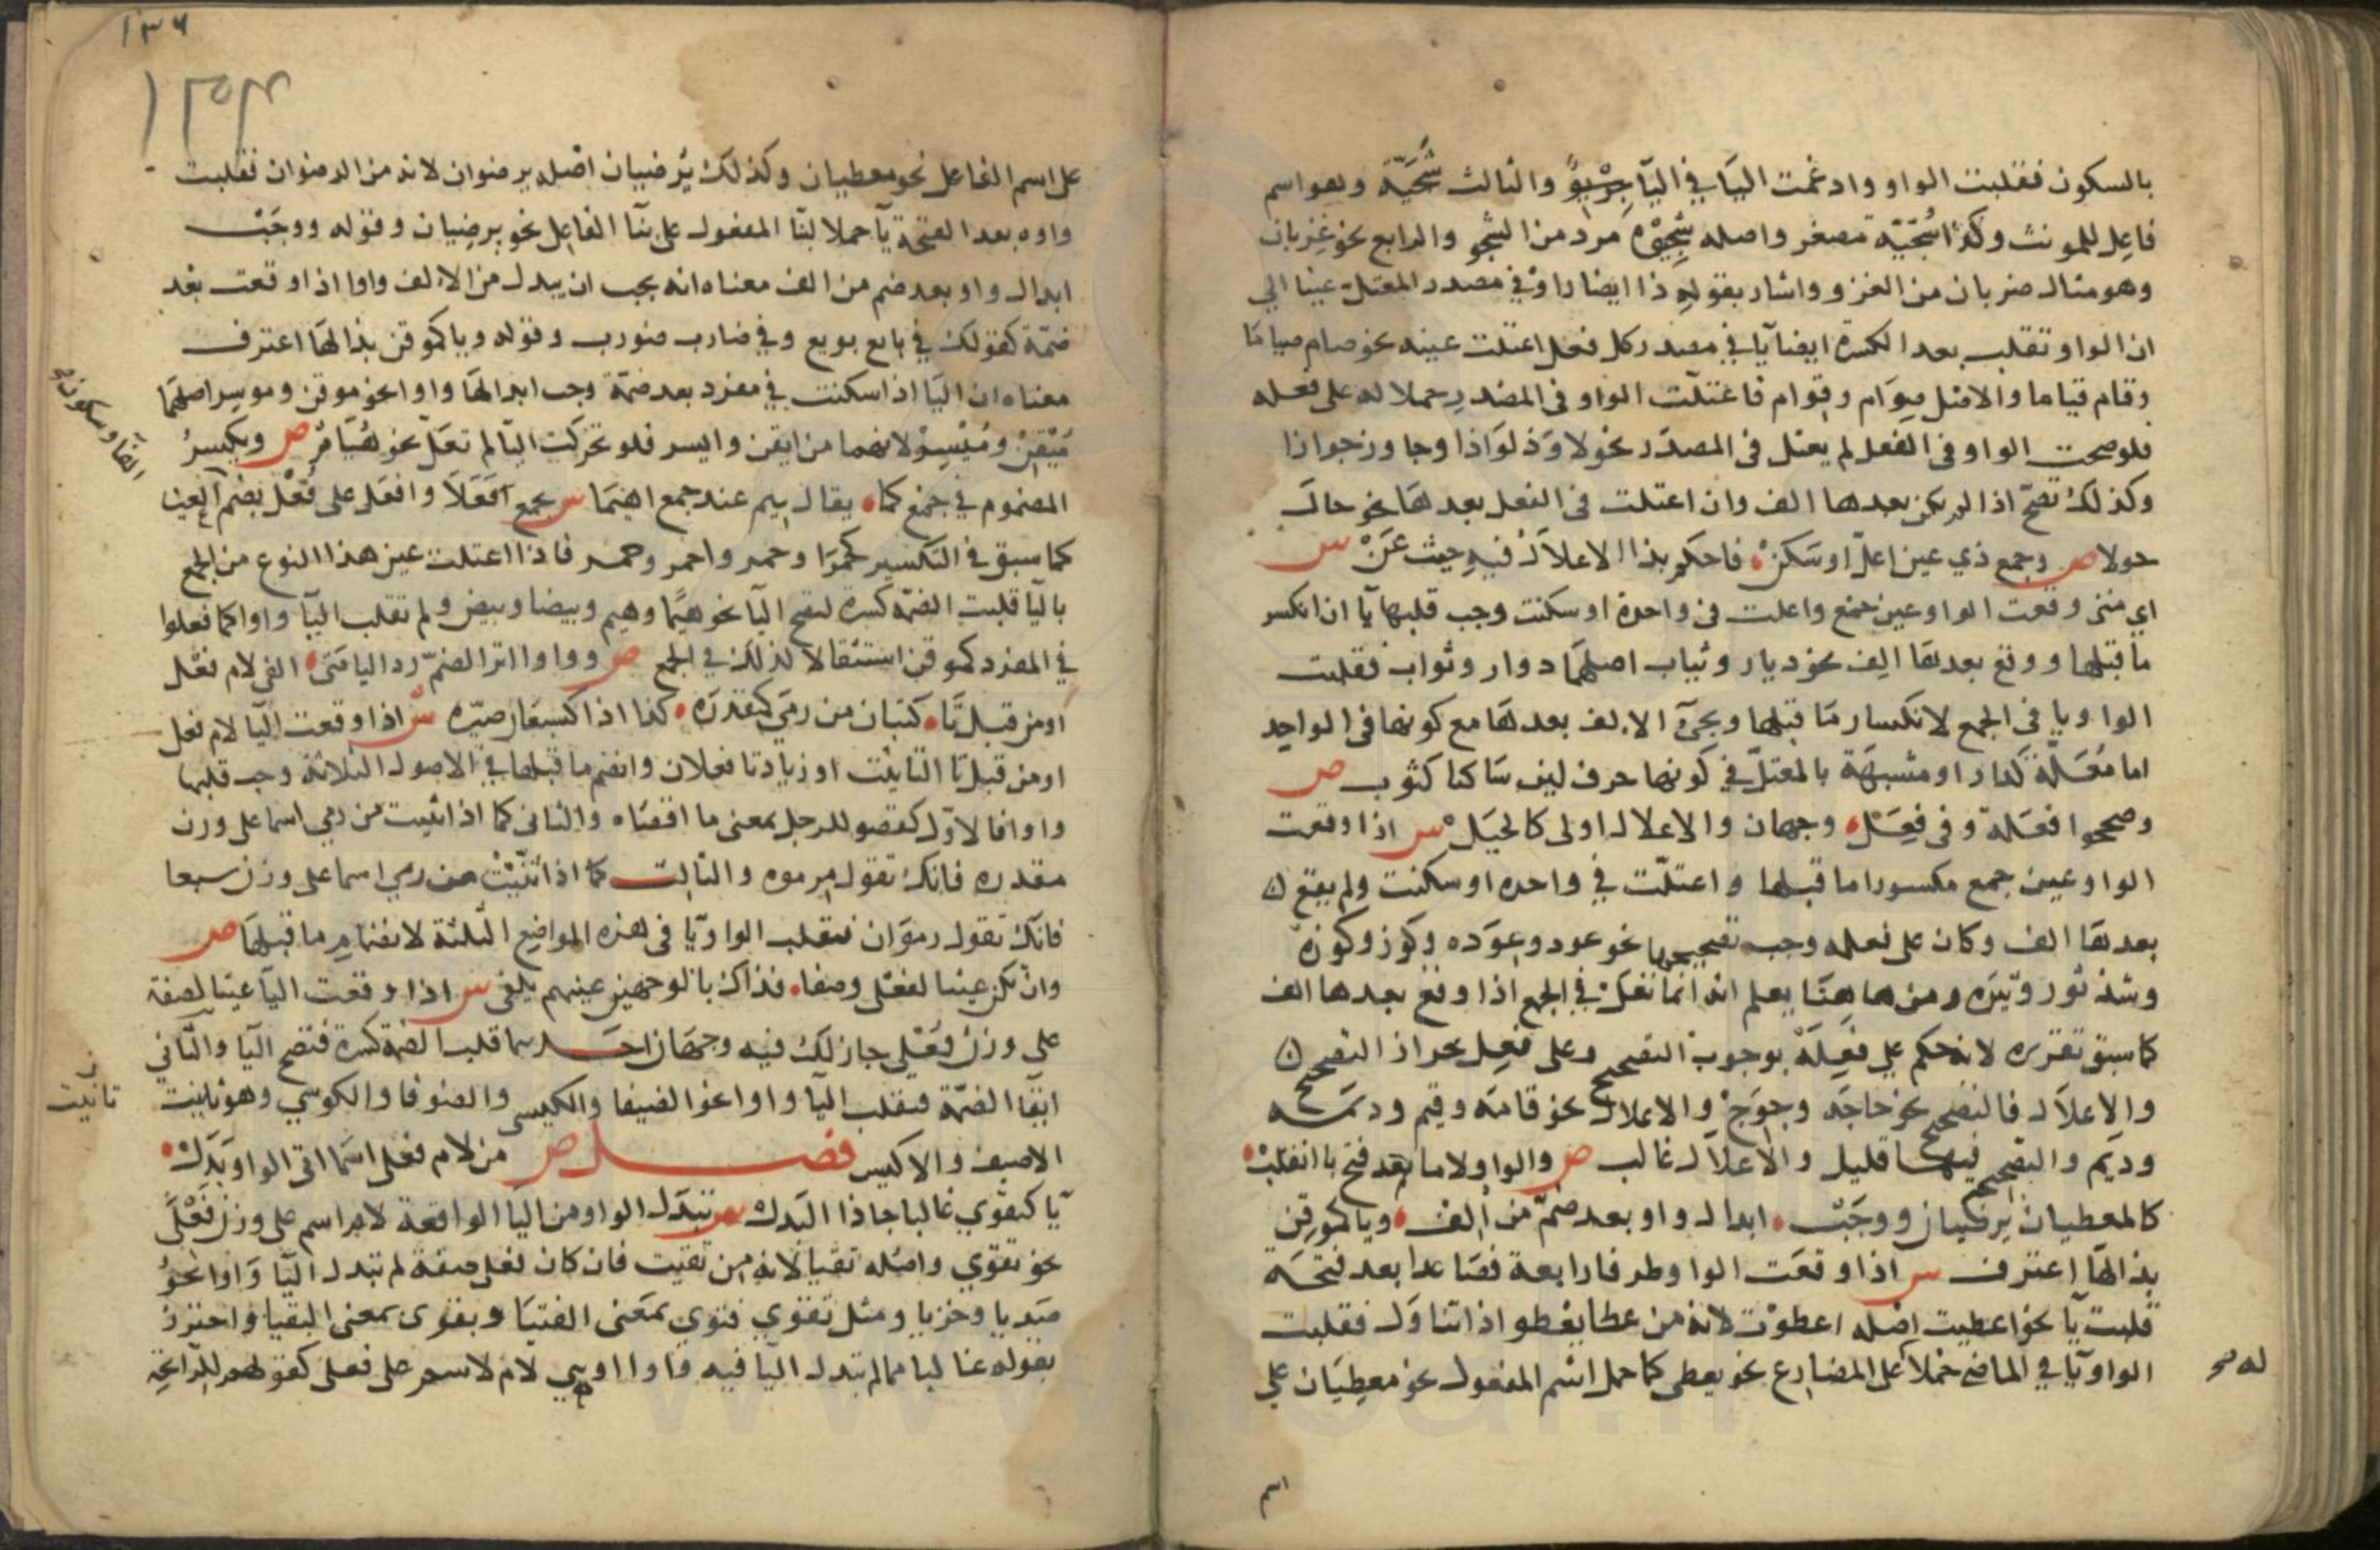 بالسكون فقلبت الواو وادغمت اليا في اليا جريو والثالث شجيّة وهو اسم
فاعل للمونث وكذا شجيّة مصغر واصله شجيوة مرد من الشجو والرابع نحو غزيان
وهو مثال ضربان من الغزو واشار بقوله ذا ايضا راوا في مصدر المعتل عينا الي
ان الواو تقلب بعد الكسرة ايضا يا في مصدر كل فعل اعتلت عينه نحو صام صياما
وقام قياما والاصل صوام وقوام فاعتلت الواو في المصدر حملا له على فعله
فلو صحت الواو في الفعل لم يعتل في المصدر نحو لاوذ لواذا وجاور جوارا
وكذلك تصحّ اذا لم يكن بعدها الف وان اعتلت في الفعل بعدها نحو حال
حولا ص وجمع ذي عين اعلّ او سكن فاحكم بذا الاعلال فيه حيث عن س
اي متى وقعت الواو عين جمع واعلت في واحدة او سكنت وجب قلبها يا ان انكسر
ما قبلها ووقع بعدها الف نحو ديار وثياب اصلهما دوار وثواب فقلبت
الواو يا في الجمع لانكسار ما قبلها ومجي الالف بعدها مع كونها في الواحد
اما معلّة كدار او مشبهة بالمعتل في كونها حرف لين ساكنا كثوب ص
وصححوا فعلة وفي فعل وجهان والاعلال اولى كالحيل س اذا وقعت
الواو عين جمع مكسورا ما قبلها واعتلّت في واحده او سكنت ولم يقع
بعدها الف وكان على فعله وجب تصحيحها نحو عود وعوده وكوز وكوزة
وشذ ثور وثيره ومن هاهنا يعلم انه انما تعل في الجمع اذا وقع بعدها الف
كما سبق تقريره لانه حكم على فعلة بوجوب التصحيح وعلى فعل بجواز التصحيح
والاعلال فالتصحيح نحو حاجه وحوج والاعلال نحو قامه وقيم وديمه
وديم والتصحيح فيها قليل والاعلال غالب ص والواو لاما بعد فتح يا انقلب
كالمعطيان يرضيان ووجب ابدال واو بعد ضمّ من الف ويا كموقن
بذا لها اعترف س اذا وقعت الواو طرفا رابعة فصاعدا بعد فتحه
قلبت يا نحو اعطيت اصله اعطوت لانه من عطا يعطو اذا تناول فقلبت
الواو يا في الماضي حملا على المضارع نحو يعطى كما حمل اسم المفعول نحو معطيان على
١٣٦
على اسم الفاعل نحو معطيان وكذلك يرضيان اصله يرضوان لانه من الرضوان فقلبت
واوه بعد الفتحة يا حملا لبنا المفعول على بنا الفاعل نحو يرضيان وقوله ووجب
ابدال واو بعد ضم من الف معناه انه يجب ان يبدل من الالف واوا اذا وقعت بعد
ضمّة كقولك في بايع بويع وفي ضارب ضورب وقوله ويا كموقن بذا لها اعترف
معناه ان اليا اذا سكنت في مفرد بعد ضمة وجب ابدالها واوا نحو موقن وموسر اصلهما
ميقن وميسر لانهما من ايقن وايسر فلو تحركت اليا لم تعلّ نحو هيام ص ويكسر
المضموم في جمع كما يقال هيم عند جمع اهيما س يجمع افعلا وافعل على فعل بضم العين
كما سبق في التكسير كحمرا وحمر واحمر وحمر فاذا اعتلت عين هذا النوع من الجمع
باليا قلبت الضمة كسرة لتصح اليا نحو هيما وهيم وبيضا وبيض ولم تقلب اليا واوا كما فعلوا
في المفرد كموقن استثقالا لذلك في الجمع ص وواوا اثر الضمّ رد اليا متى الفي لام فعل
او من قبل تا كتبان من رمى كمقدره كذا اذا كسبعان صيره س اذا وقعت اليا لام فعل
او من قبل تا التانيث او زيادتا فعلان وانضم ما قبلها في الاصول الثلاثة وجب قلبها
واوا فالاول كقضو الرجل بمعنى ما اقضاه والثاني كما اذا بنيت من رمي اسما على وزن
مقدره فانك تقول مرموه والثالث كما اذا بنيت من رمي اسما على وزن سبعا
فانك تقول رموان فتقلب الواو يا في هذه المواضع الثلثة لانضمام ما قبلها ص
وان تكن عينا لفعلى وصفا فذاك بالوجهين عنهم يلفى س اذا وقعت اليا عينا لصفة
على وزن فعلى جاز لك فيه وجهان احدهما قلب الضمة كسرة فتصح اليا والثاني
ابقا الضمّة فتقلب اليا واوا نحو الضيفا والكيسى والضوفا والكوسي وهو تانيث
الاضيف والاكيس فصل ص من لام فعلى اسما اتى الواو بدل
يا كتقوي غالبا جا ذا البدل س تبدل الواو من اليا الواقعة لام اسم على وزن فعلى
نحو تقوي واصله تقيا لانه من تقيت فان كان فعلى صفة لم تبدل اليا واوا نحو
صديا وخزيا ومثل تقوي فتوي بمعنى الفتيا وبقوى بمعنى البقيا واحترز
بقوله غالبا مما لم تبدل اليا فيه واوا وهي لام لاسم على فعلى كقولهم للرائحة
تانيث